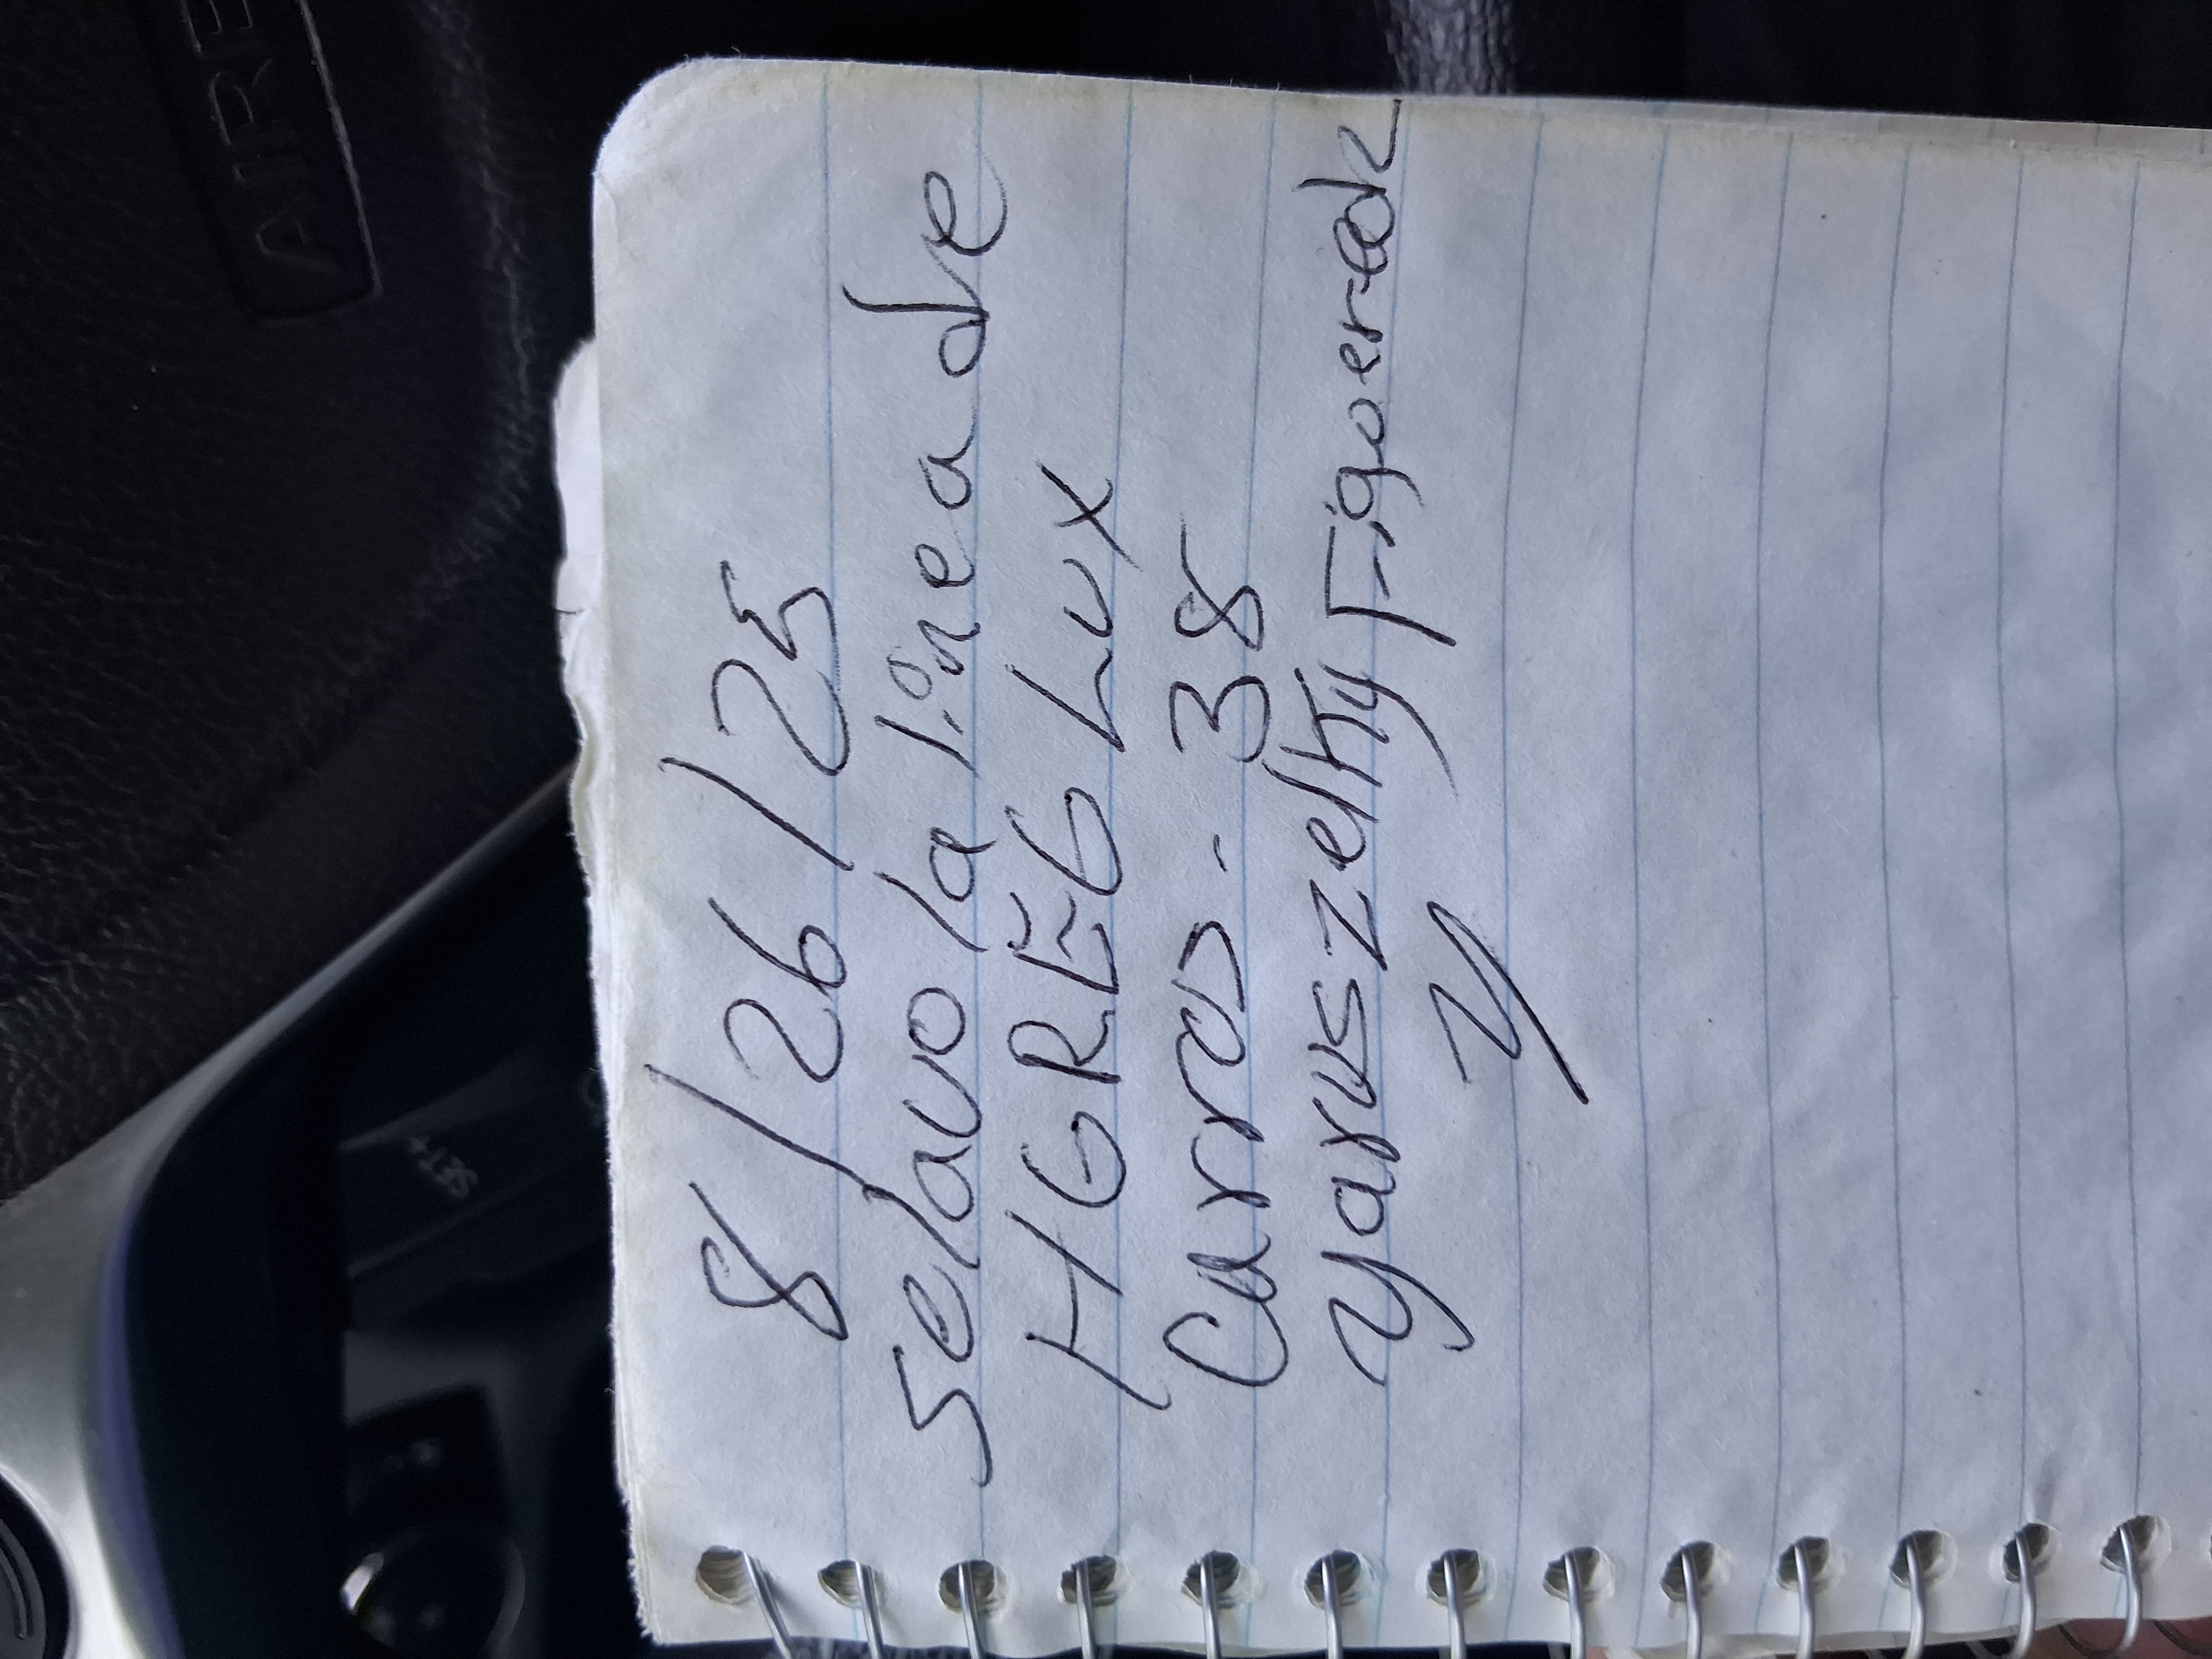 8/26/25
selavo la linea de
HGREG Lux
Carros - 38
yaruszelhy Figoeredz
y
AIRB
SET+